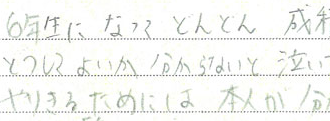 6年生になってどんどん 成績
どうしてよいか分からないと泣い
やりきるためには 本人が分